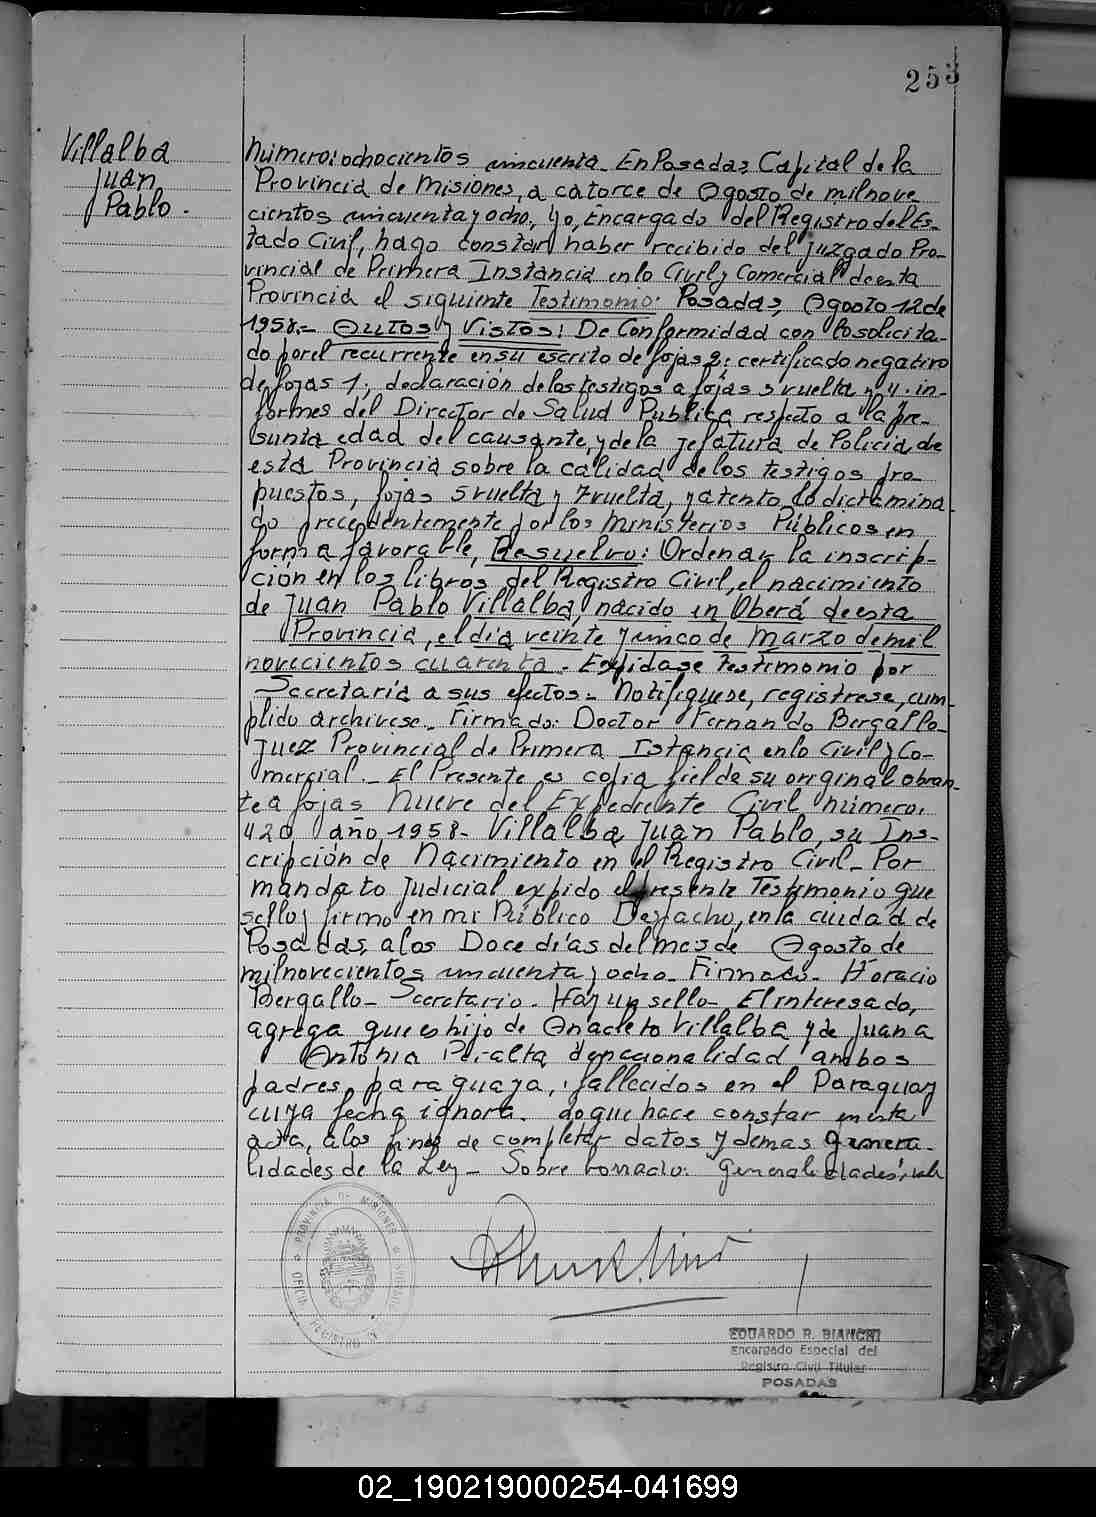 253
Villalba
Juan
Pablo.
Número: ochocientos cincuenta. En Posadas, Capital de la
Provincia de Misiones, a catorce de Agosto de mil nove-
cientos cincuenta y ocho, yo, Encargado del Registro del Es-
tado Civil, hago constar haber recibido del juzgado Pro-
vincial de Primera Instancia en lo Civil y Comercial de esta
Provincia el siguiente Testimonio: Posadas, Agosto 12 de
1958.- Autos y Vistos: De Conformidad con lo solicita-
do por el recurrente en su escrito de fojas 2; certificado negativo
de fojas 1; declaración de los testigos a fojas 3 vuelta y 4. in-
formes del Director de Salud Publica respecto a la pre-
sunta edad del causante, y de la jefatura de Policia de
esta Provincia sobre la calidad de los testigos pro-
puestos, fojas 5 vuelta y 7 vuelta, y atento lo dictamina-
do precedentemente por los Ministerios Públicos en
forma favorable, Resuelvo: Ordenar la inscrip-
ción en los libros del Registro Civil, el nacimiento
de Juan Pablo Villalba, nacido en Oberá de esta
Provincia, el día veinte y cinco de Marzo de mil
novecientos cuarenta. Expidase testimonio por
Secretaría a sus efectos. Notifiquese, registrese, cum-
plido archivese. Firmado: Doctor Fernando Bergallo-
Juez Provincial de Primera Istancia en lo Civil y Co-
mercial.- El Presente es copia fiel de su original obran-
te a fojas nueve del Expediente Civil número,
420 año 1958- Villalba Juan Pablo, su Ins-
cripción de Nacimiento en el Registro Civil- Por
mandato judicial expido el presente Testimonio que
sello y firmo en mi Público Despacho, en la ciudad de
Posadas, a los Doce días del mes de Agosto de
mil novecientos cincuenta y ocho. Firmado- Horacio
Bergallo- Secretario. Hay un sello- El interesado,
agrega que es hijo de Anacleto Villalba y de Juana
Antonia Peralta de nacionalidad ambos
padres, paraguaya, fallecidos en el Paraguay
cuya fecha ignora. lo que hace constar en esta
acta, a los fines de completar datos y demas genera-
lidades de la Ley- Sobre borrado: Generalidades: vale
PROVINCIA DE MISIONES
REGISTRO
EDUARDO R. BIANCHI
Encargado Especial del
Registro Civil Titular
POSADAS
02_190219000254-041699